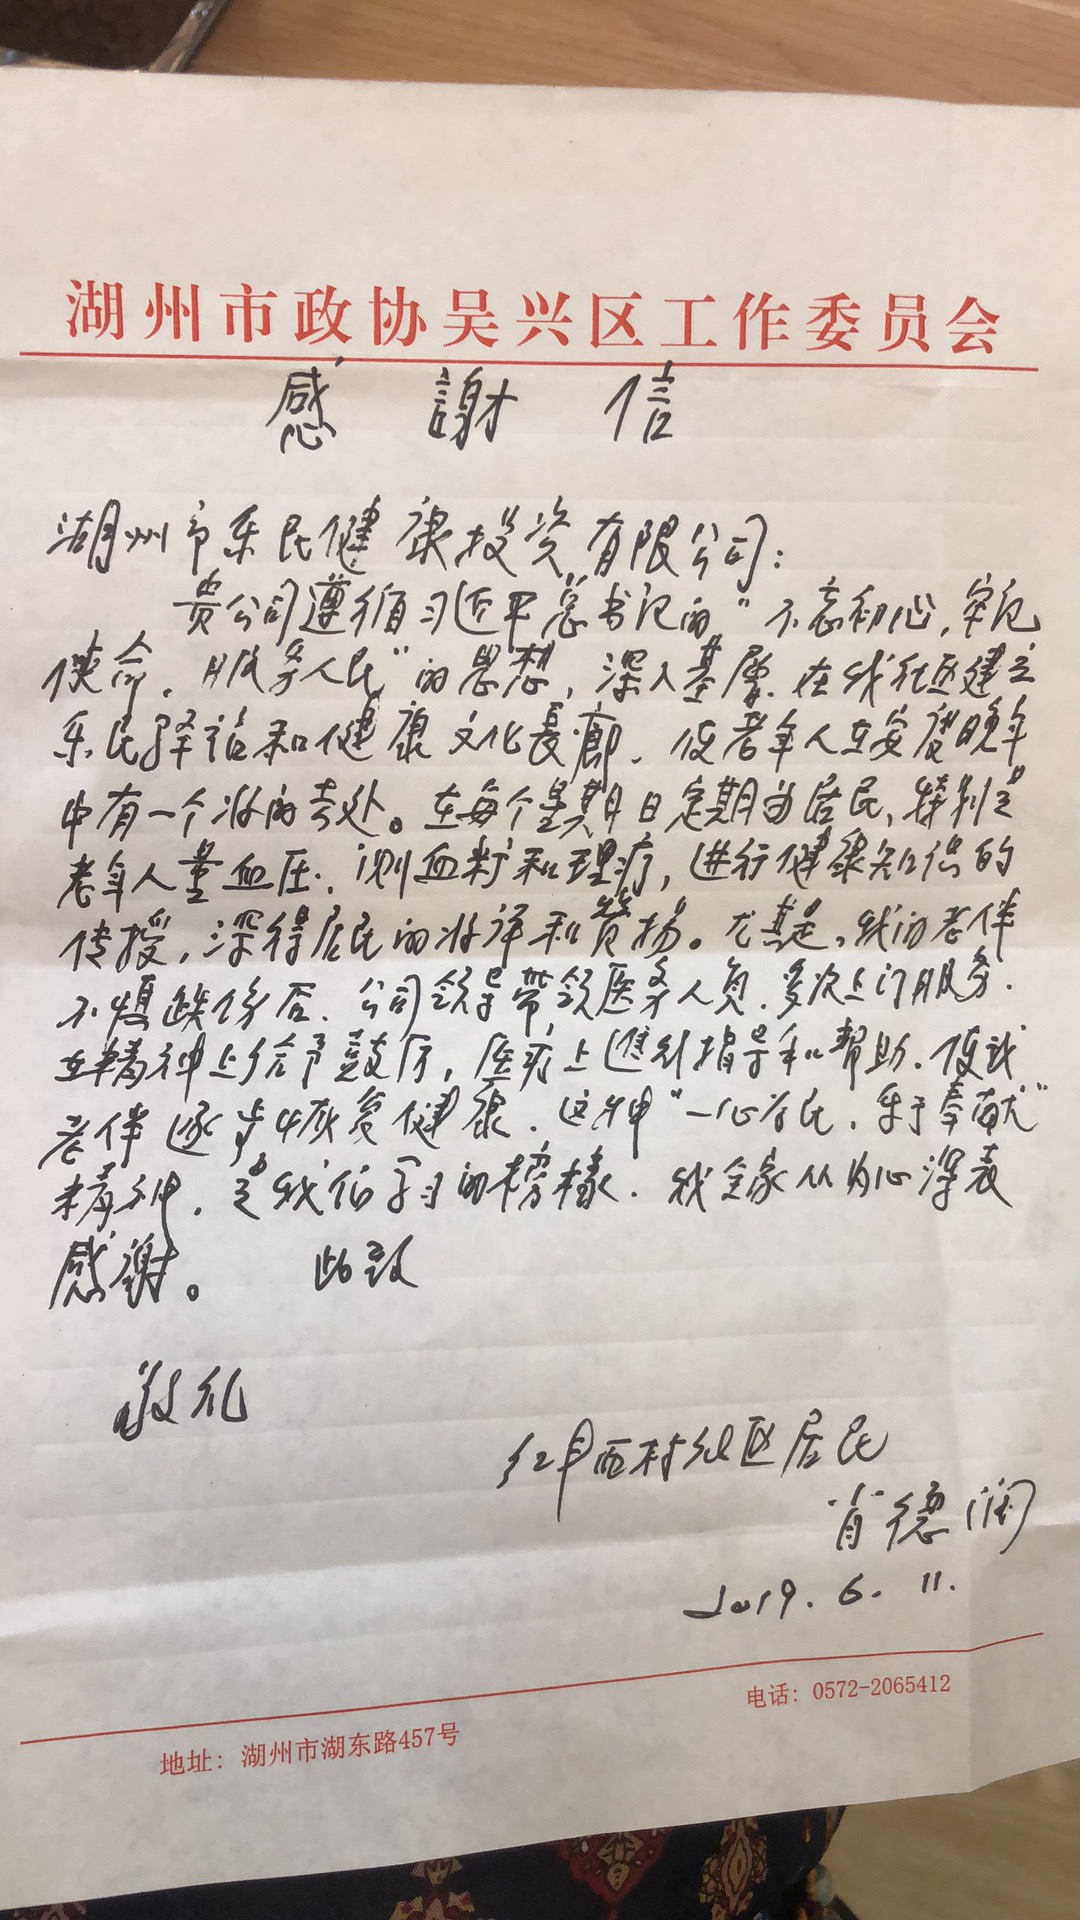 湖州市政协吴兴区工作委员会
感謝信
湖州市乐民健康投资有限公司:
贵公司遵循习近平总书记的“不忘初心,牢记
使命,服务人民”的思想,深入基层,在我社区建立
乐民驿站和健康文化長廊,使老年人在安度晚年
中有一个好的去处。在每个星期日定期为居民,特别是
老年人量血压,测血糖和理疗,进行健康知识的
传授,深得居民的好评和赞扬。尤其是,我的老伴
不慎跌伤后,公司领导带领医务人员,多次上门服务,
在精神上给予鼓厉,医疗上進行指导和帮助,使我
老伴逐步恢复健康,这种“一心为民,乐于奉献”
精神,是我们学习的榜樣,我全家从内心深表
感谢。 此致
敬礼
红丰西村社区居民
肖德润
2019.6.11.
电话: 0572-2065412
地址: 湖州市湖东路457号